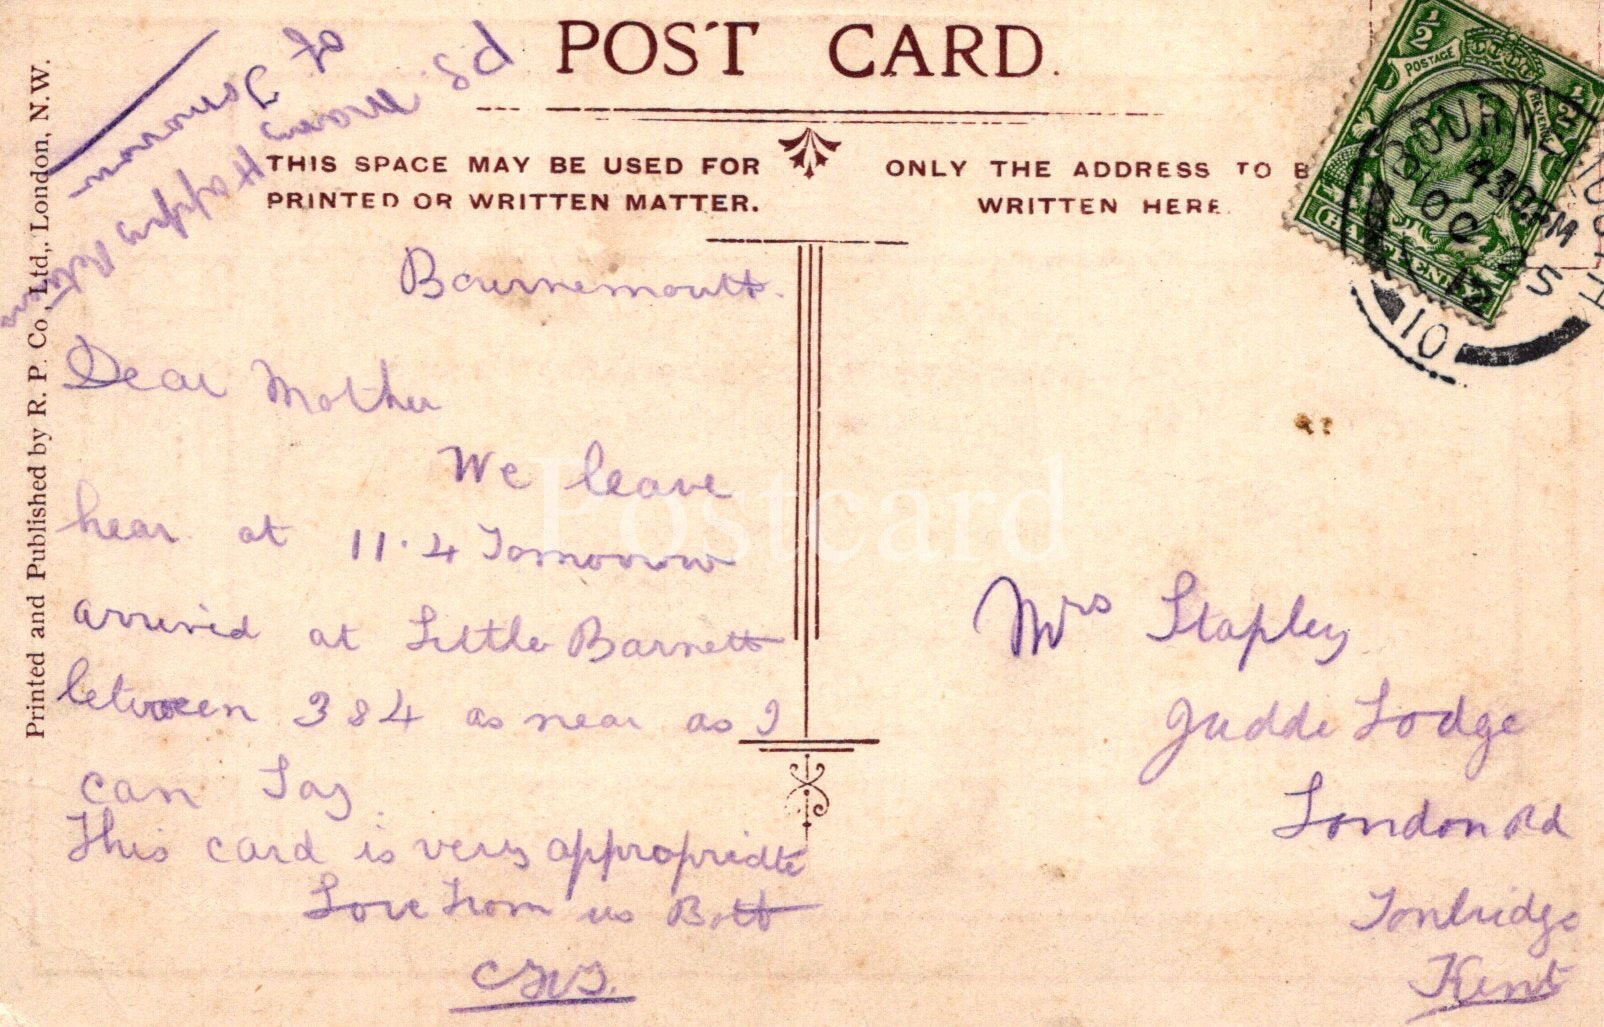 POST CARD.
THIS SPACE MAY BE USED FOR
PRINTED OR WRITTEN MATTER.
ONLY THE ADDRESS TO B
WRITTEN HERE.
Printed and Published by R. P. Co., Ltd., London, N.W.
½ POSTAGE REVENUE ½
HALFPENNY
BOURNEMOUTH
4 30 PM
OC 25
12
10
Bournemouth.
Dear Mother
We leave
hear at 11.4 Tomorrow
arrived at Little Barnett
between 3 & 4 as near as I
can Say.
This card is very appropriate
Love From us Both
PS. Many Happy Returns
of Tomorrow
Mrs Stapley
Judde Lodge
London Rd
Tonbridge
Kent
Postcard